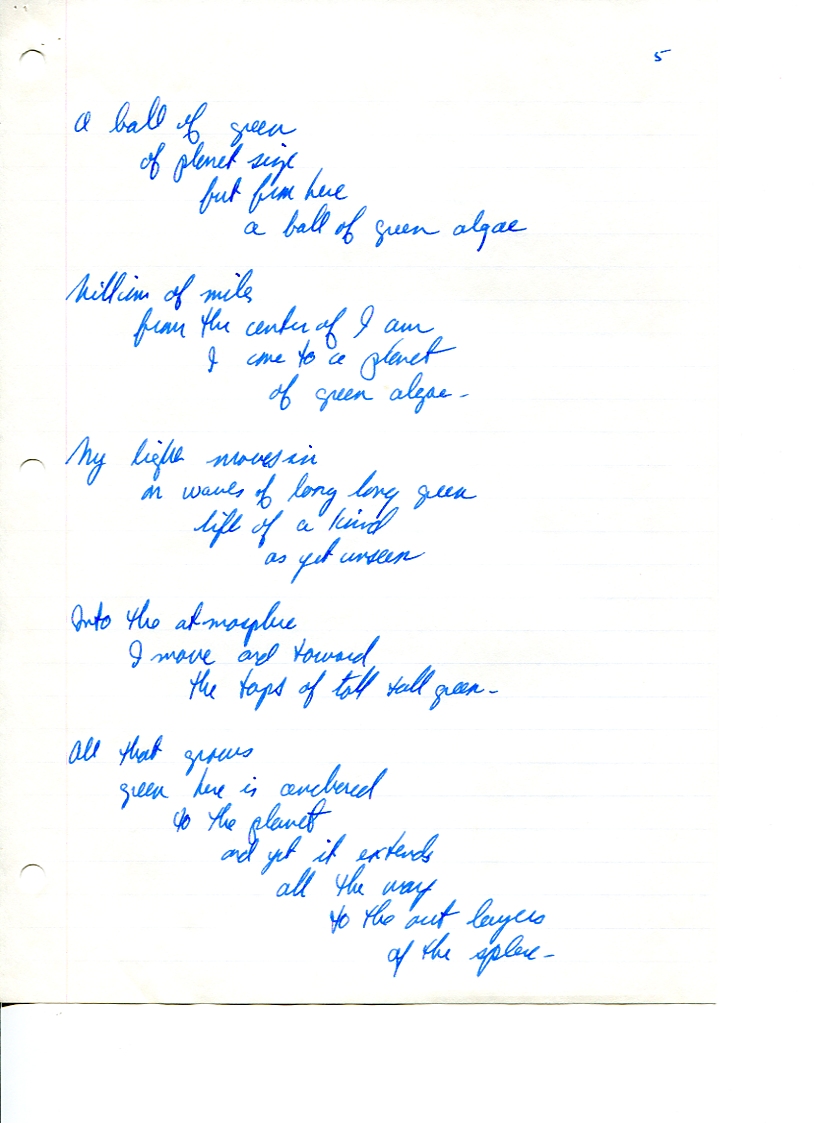 5
A ball of green
of planet size
but from here
a ball of green algae
Millions of miles
from the center of I am
I come to a planet
of green algae -
My light moves in
on waves of long long green
life of a kind
as yet unseen
Into the atmosphre
I move and toward
the tops of tall tall green -
All that grows
green here is anchored
to the planet
and yet it extends
all the way
to the out layers
of the sphere -